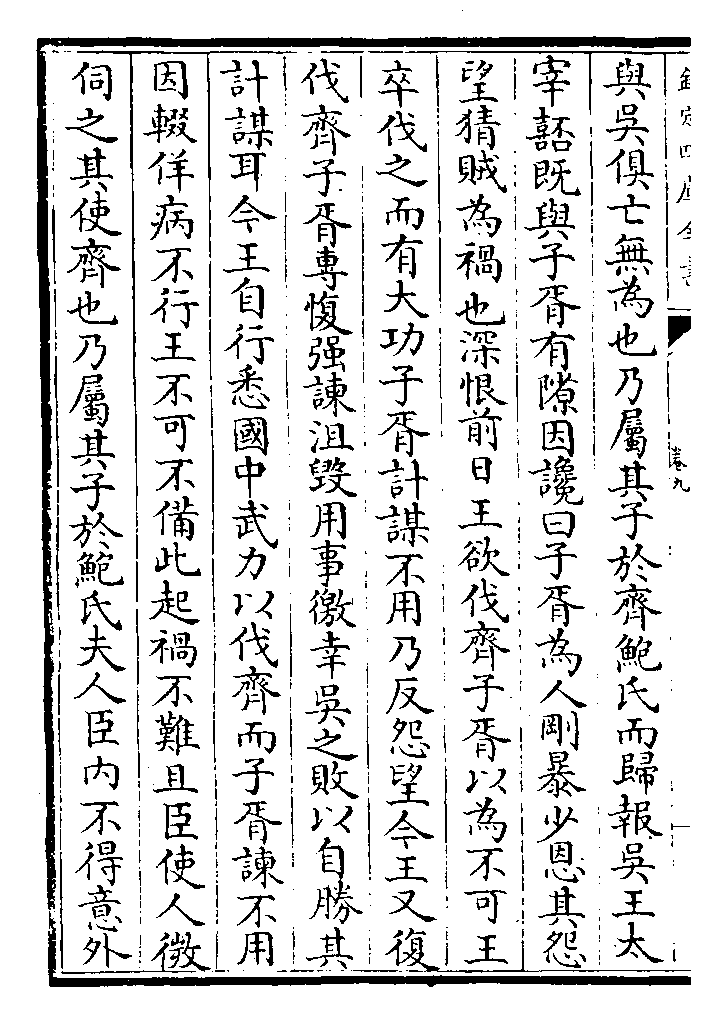 欽定四庫全書
卷九
與吳俱亡無為也乃屬其子於齊鮑氏而歸報吳王太
宰嚭既與子胥有隙因讒曰子胥為人剛暴少恩其怨
望猜賊為禍也深恨前日王欲伐齊子胥以為不可王
卒伐之而有大功子胥計謀不用乃反怨望今王又復
伐齊子胥專愎强諫沮毀用事徼幸吳之敗以自勝其
計謀耳今王自行悉國中武力以伐齊而子胥諫不用
因輟佯病不行王不可不備此起禍不難且臣使人微
伺之其使齊也乃屬其子於鮑氏夫人臣內不得意外